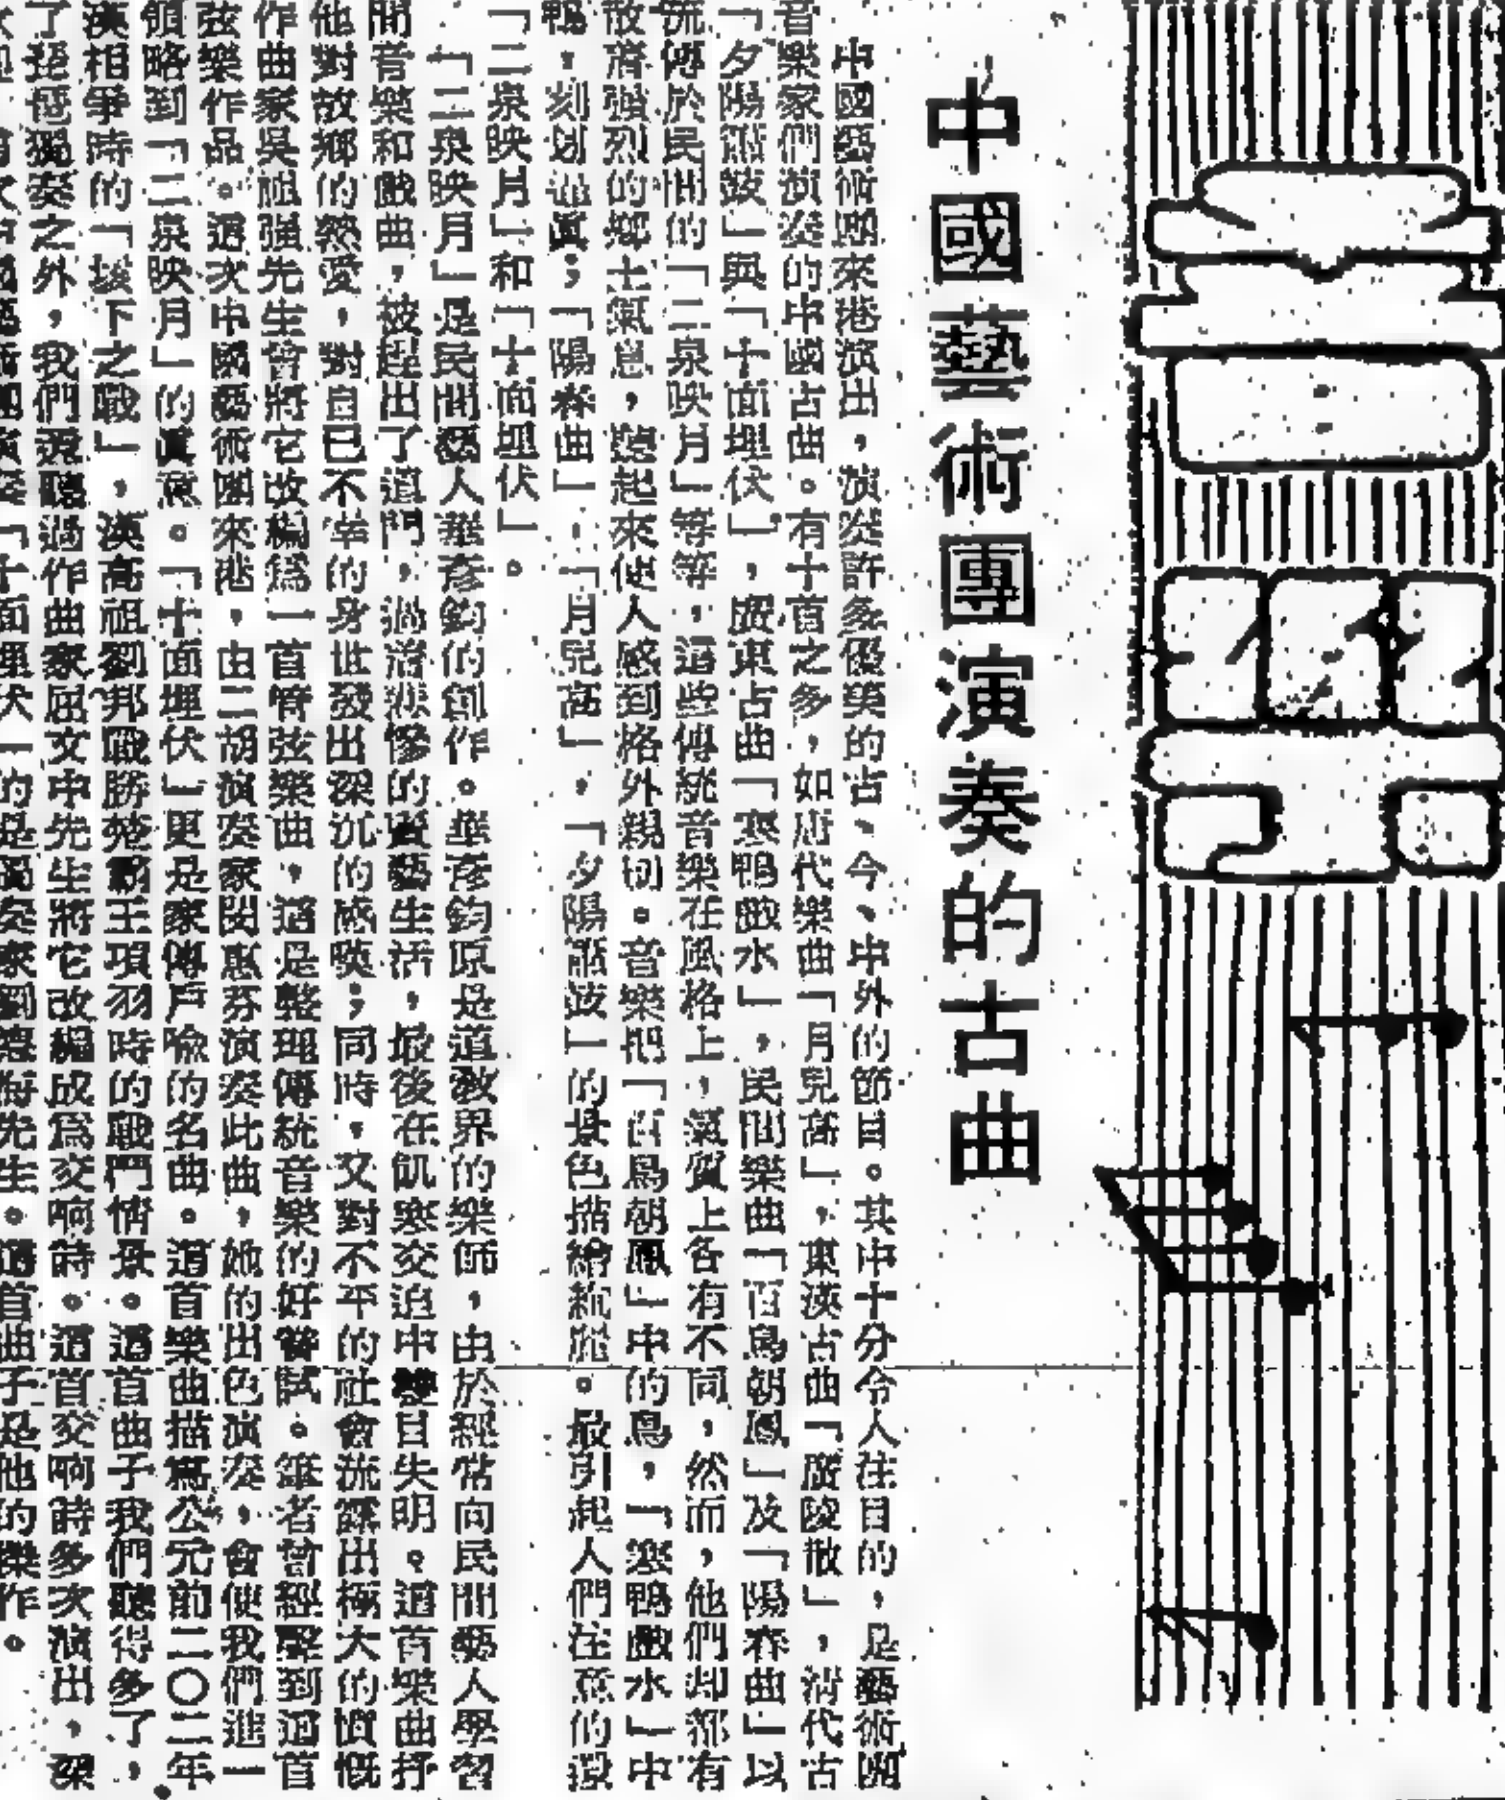 中國藝術團演奏的古曲
中國藝術團來港演出，演奏許多優美的古、今、中外的節目。其中十分令人注目的，是藝術團
音樂家們演奏的中國古曲。有十首之多，如唐代樂曲「月兒高」，東漢古曲「廣陵散」，清代古
「夕陽簫鼓」與「十面埋伏」，廣東古曲「寒鴨戲水」，民間樂曲「百鳥朝鳳」及「陽春曲」以
流傳於民間的「二泉映月」等等，這些傳統音樂在風格上，氣質上各有不同，然而，他們却都有
散濟强烈的鄉土氣息，聽起來使人感到格外親切。音樂把「百鳥朝鳳」中的鳥，「寒鴨戲水」中
鴨，刻划逼眞；「陽春曲」，「月兒高」，「夕陽簫鼓」的景色描繪綺麗。最引起人們注意的還
「二泉映月」和「十面埋伏」。
「二泉映月」是民間藝人華彥鈞的創作。華彥鈞原是道教界的樂師，由於經常向民間藝人學習
間音樂和戲曲，被趕出了道門，過着悲慘的賣藝生活，最後在飢寒交迫中雙目失明。這首樂曲抒
他對故鄉的熱愛，對自己不幸的身世發出深沉的感嘆；同時，又對不平的社會流露出極大的憤慨
作曲家吳祖强先生曾將它改編爲一首管弦樂曲，這是整理傳統音樂的好嘗試。筆者曾經聽到這首
弦樂作品。這次中國藝術團來港，由二胡演奏家閔惠芬演奏此曲，她的出色演奏，會使我們進一
領略到「二泉映月」的眞意。「十面埋伏」更是家傳戶喩的名曲。這首樂曲描寫公元前二〇二年
漢相爭時的「垓下之戰」，漢高祖劉邦戰勝楚霸王項羽時的戰鬥情景。這首曲子我們聽得多了，
了琵琶獨奏之外，我們還聽過作曲家屈文中先生將它改編成爲交响詩。這首交响詩多次演出，深
演奏「十面埋伏」的是獨奏家劉德海先生。這首曲子是他的傑作。